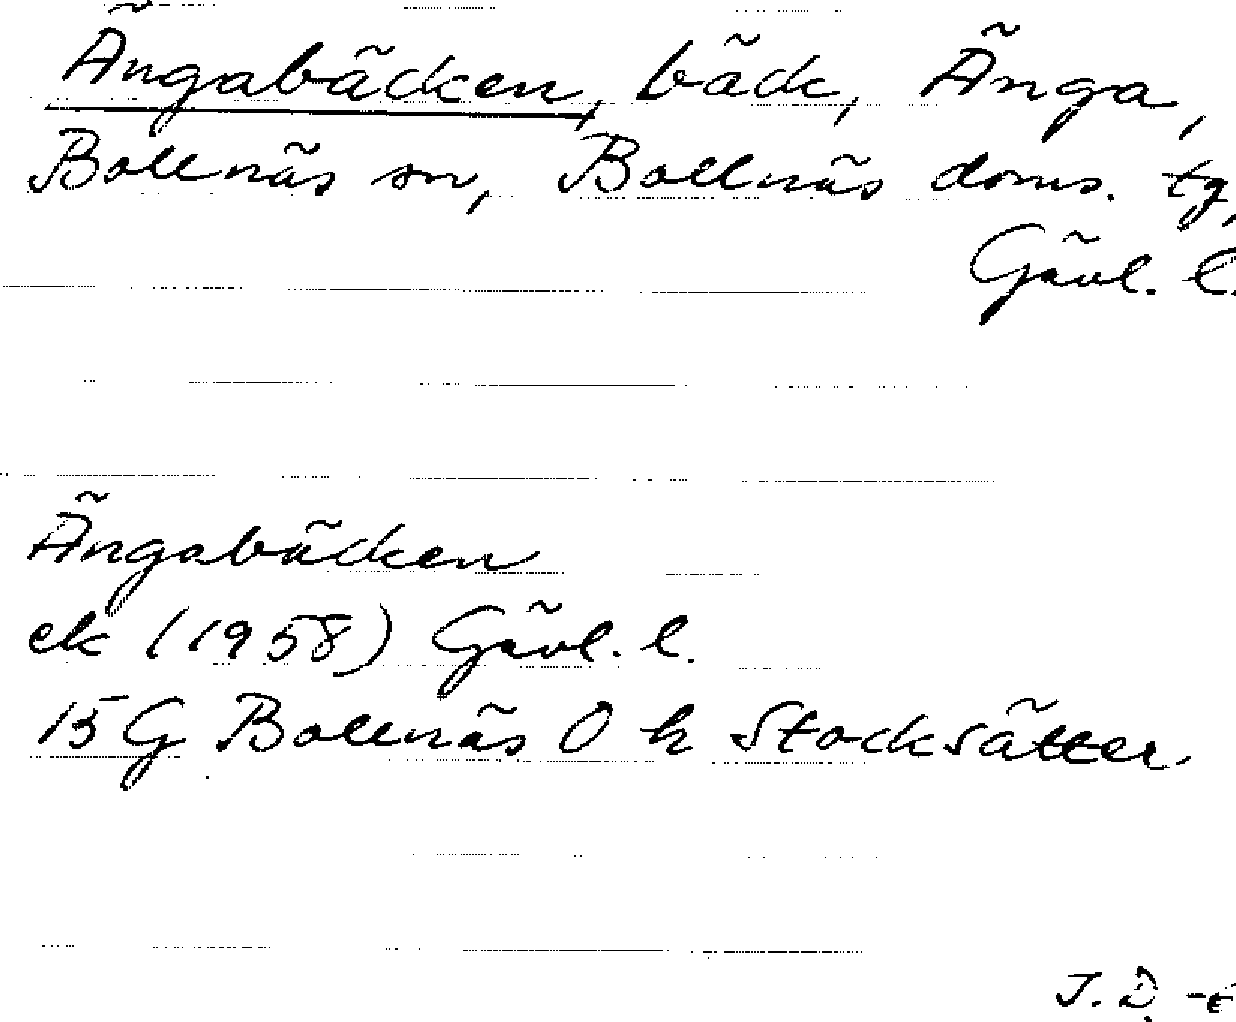 Ängabäcken, bäck, Änga,
Bollnäs sn, Bollnäs doms. tg,
Gävl. l.
Ängabäcken
ek (1958) Gävl. l.
15G Bollnäs O h Stocksätter
J. D.